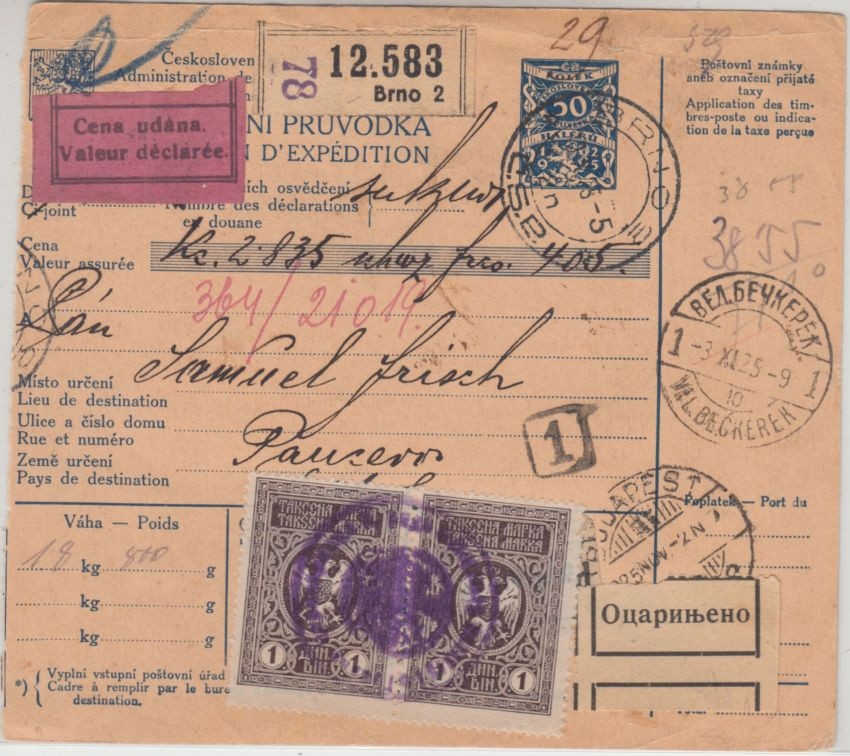 29
Českosloven
Administration de
78
12.583
Brno 2
Cena udána.
Valeur déclarée.
NÍ PRŮVODKA
N D'EXPÉDITION
ČR
KOLEK
50
HALÉŘŮ
BRNO
Poštovní známky
aneb označení přijaté
taxy
Application des tim-
bres-poste ou indica-
tion de la taxe perçue
ních osvědčení
Ci-joint
Nombre des déclarations
en douane
38 55
Cena
Valeur assurée
Kč. 2.835
405
364/21019
A
Pán
Samuel Frisch
ВЕЛ.БЕЧКЕРЕК
1
-3 XI.25-9
1
10
VEL.BEČKEREK
Místo určení
Lieu de destination
Ulice a číslo domu
Rue et numéro
Pancevo
Země určení
Pays de destination
1
BUDAPEST
925NOV-2N
Poplatek — Port du
Váha — Poids
18 kg 800 g
kg g
kg g
ТАКСЕНА МАРКА
TAKSENA MARKA
1 ДИН. DIN. 1
ТАКСЕНА МАРКА
TAKSENA MARKA
1 ДИН. DIN. 1
Оцарињено
*) { Vyplní vstupní poštovní úřad
Cadre à remplir par le bure
destination.